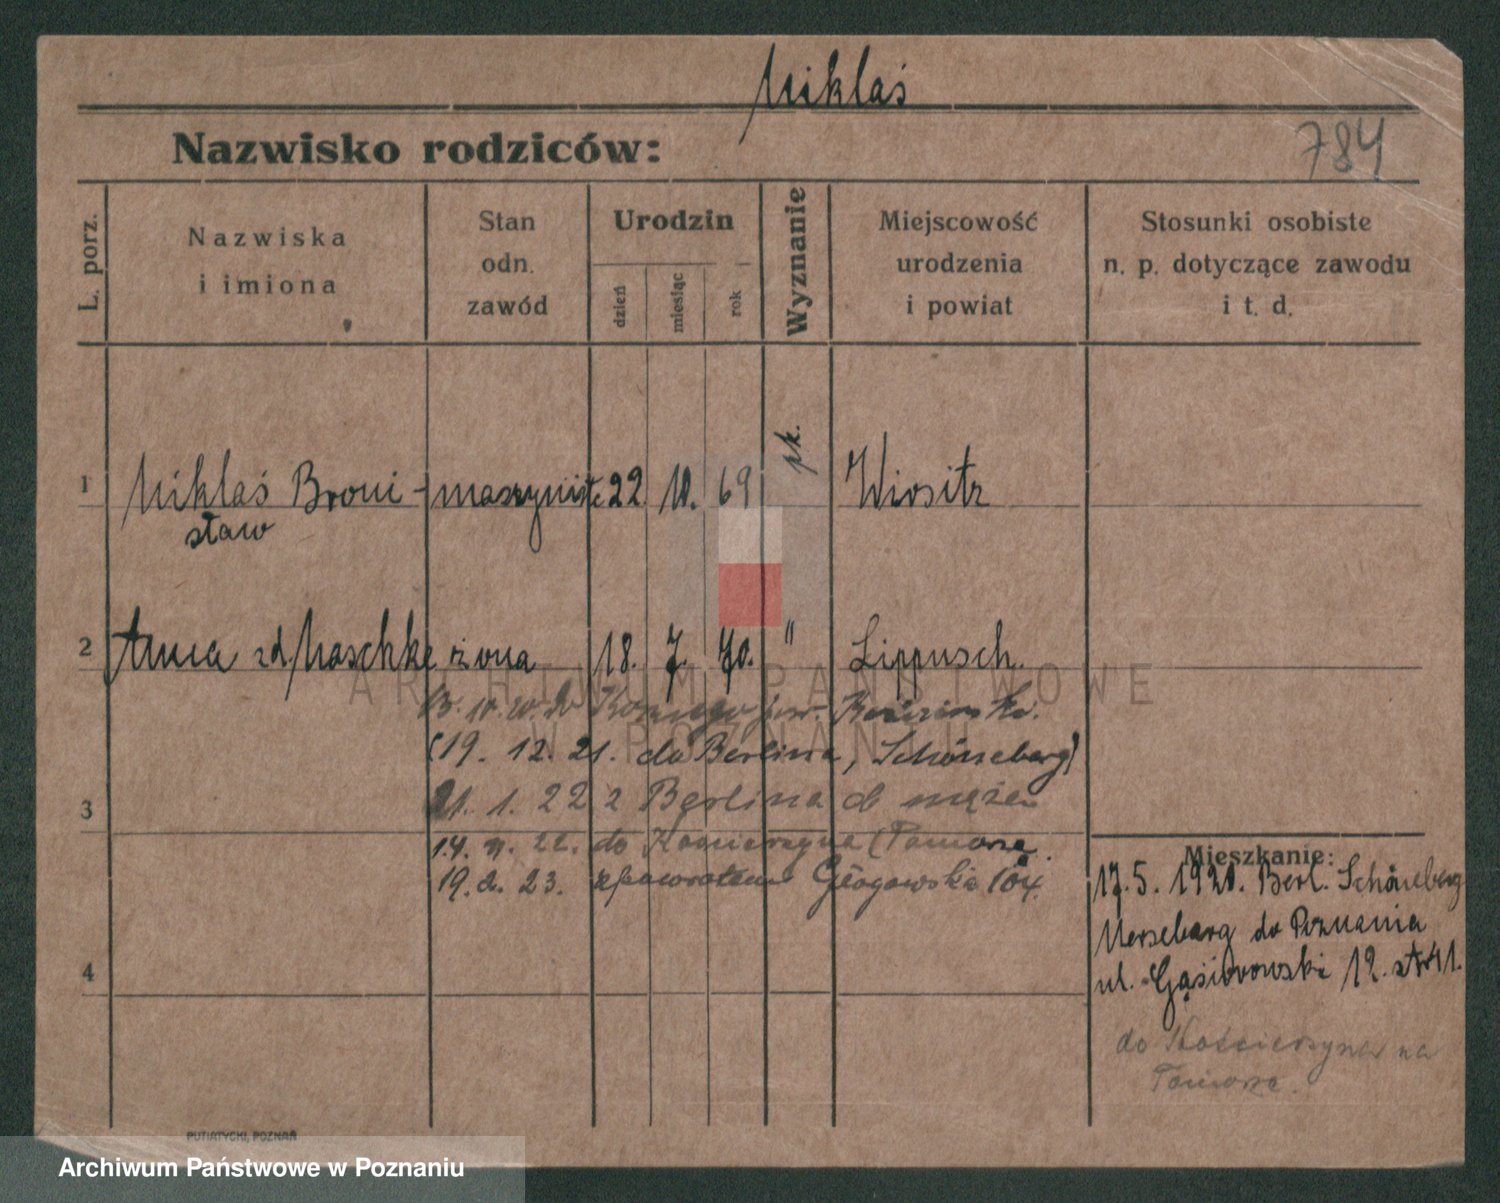 Miklaś
Nazwisko rodziców:
784
L. porz.
Nazwiska
i imiona
Stan
odn.
zawód
Urodzin
dzień
miesiąc
rok
Wyznanie
Miejscowość
urodzenia
i powiat
Stosunki osobiste
n. p. dotyczące zawodu
i t. d.
1 Miklaś Broni- maszyniste 22 10. 69 rk. Wirsitz
sław
2 Anna zd. Maschke żona 18. 7. 70. " Lippusch.
ARCHIWUM PAŃSTWOWE
W POZNANIU
(19. 12. 21. do Berlina, Schöneberg)
3 21. 1. 22 z Berlina od męża
14. 22. do Kościerzyna (Pomorze
19. 2. 23. z powrotem Głogowska 104.
Mieszkanie:
17. 5. 1921. Berl. Schöneberg
Merseburg do Poznania
ul. Gąsiorowski 12. 41.
4
do Kościerzyna na
Pomorze.
PUTIATYCKI, POZNAŃ
Archiwum Państwowe w Poznaniu